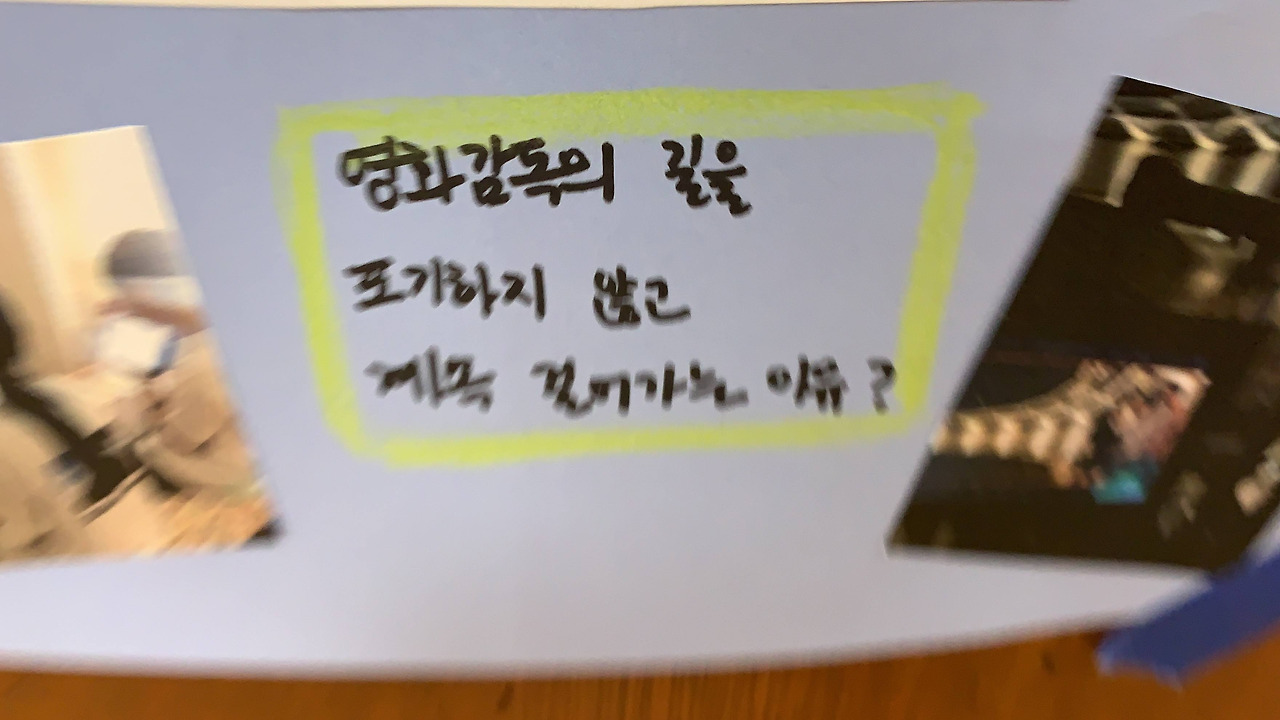 영화감독의 길을
포기하지 않고
계속 걸어가는 이유?